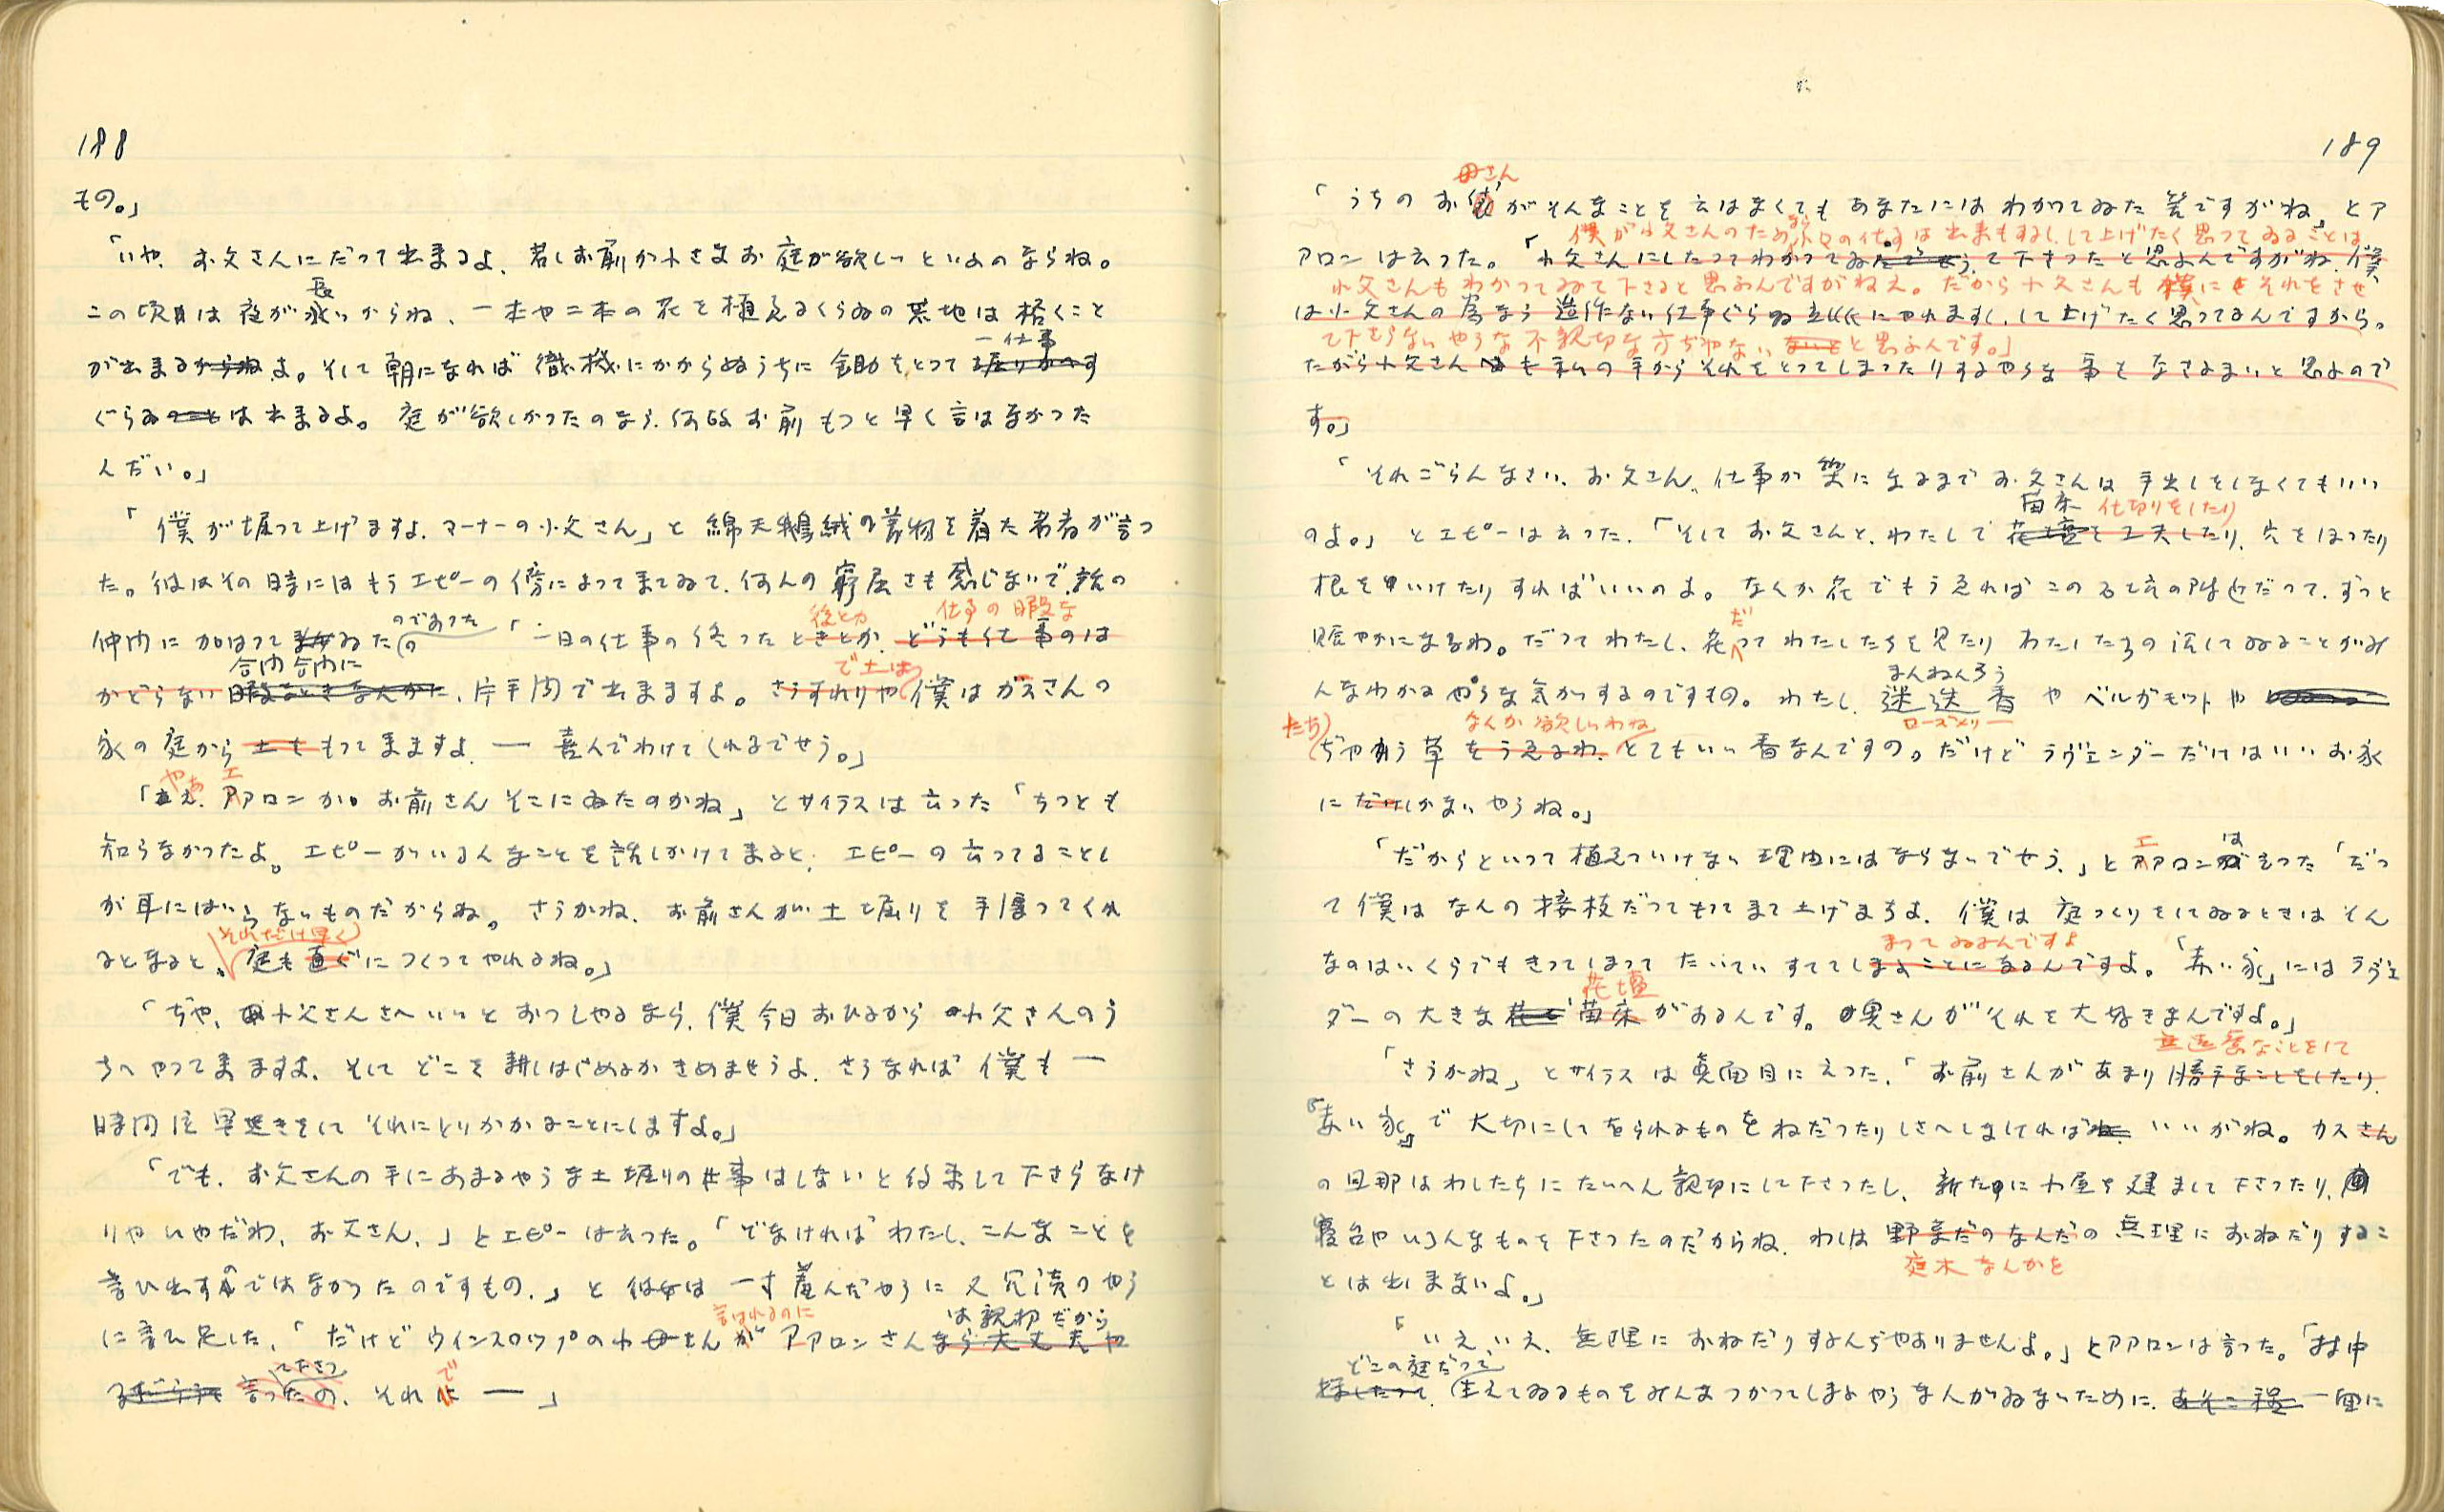 188
もの。」
「いや、お父さんにだって出来るよ、若しお前が小さなお庭が欲しいといふのならね。
この頃は夜が長いからね、一本や二本の花を植えるくらゐの
が出来るよ。そして朝になれば織機にかからぬうちに鋤をとって一仕事
ぐらゐは出来るよ。庭が欲しかったのなら、何故お前もつと早く言はなかった
んだい。」
「僕が堀って上げますよ、マーナーの小父さん」と綿天鵞絨の着物を着た若者が言つ
た。彼はその時にはもうエピーの傍によって来てゐて、何んの窮屈さも感じないで、話の
仲間に加はってゐたのであった「一日の仕事の終った後とか 仕事の暇な
合間合間に、片手間で出来ますよ。で土は僕はガスさんの
家の庭からもって来ますよ ― 喜んでわけてくれるでせう。」
「やあ、エアロンか。お前さんそこにゐたのかね」とサイラスは云つた「ちつとも
知らなかつたよ。エピーがいろんなことを話しかけてまると、エピーの云ってることし
か耳にはいらないものだからね。さうかね、お前さんが土堀りを手傳ってくれ
るとなると、それだけ早く庭もつくってやれるね。」
「ぢや、小父さんさへいいとおつしやるなら、僕今日おひるから小父さんのう
ちへやつて来ますよ、そしてどこを耕しはじめるかきめませうよ、さうなれば僕も一
時間位早起きをしてそれにとりかかることにしますよ。」
「でも、お父さんの手にあまるやうな土堀りの仕事はしないと約束して下さらなけ
りやいやだわ、お父さん、」とエピーは云つた。「でなければわたし、こんなことを
言ひ出すのではなかったのですもの、」と彼女は一寸羞んだやうに又冗談のやう
に言ひ足した、「だけどウインスロップの小母さんが言はれるのにアアロンさんは親切だから
それで ― 」
189
「うちのお母さんがそんなことを云はなくてもあなたにはわかつてゐた筈ですがね」とア
僕が小父さんのためなら少々の仕事は出来もするし、して上げたく思ってゐることは、
アロンは云つた。「小父さんにしたつてわかつてゐて下さつたと思ふんですがね、僕
小父さんもわかつてゐて下さると思ふんですがねえ。だから小父さんも僕にそれをさせ
は小父さんの為なら造作ない仕事ぐらゐ立派にやれますし、して上げたく思ってるんですから。
て下さらないやうな不親切な方ぢやないと思ふんです。」
だから小父さんも私の手からそれをとつてしまつたりするやうな事をなさるまいと思ふので
す。」
「それごらんなさい、お父さん、仕事が楽になるまでお父さんは手出しをしなくてもいい
のよ。」とエピーは云つた、「そしてお父さんと、わたしで苗床 仕切りをしたり、穴をほったり
根をいけたりすればいいのよ。なんか花でもうゑればこの石坑の附近だって、ずっと
賑やかになるわ。だってわたし、花だってわたしたちを見たりわたしたちの話してゐることがみ
んなわかるやうな気がするのですもの。わたし、迷迭香やベルガモットや
まんねんろう
ローズメリー
たちぢやかう草なんか欲しいわね とてもいい香なんですの。だけどラヴェンダーだけはいいお家
にしかないやうね。」
「だからといって植えていけない理由にはならないでせう、」とエアロンは云つた「だつ
て僕はなんの接枝だってもって来て上げますよ、僕は庭つくりをしてゐるときはそん
なのはいくらでもきってしまって たいていすててしまってゐるんですよ。「赤い家」にはラヴェ
ダーの大きな花壇があるんです。奥さんがそれを大好きなんですよ。」
「さうかね」とサイラスは真面目に云つた、「お前さんがあまり無遠慮なことをして
「赤い家」で大切にしてをられるものをねだったりしさへしなければ、いいがね。カス
の旦那はわしたちにたいへん親切にして下さつたし、新たに小屋を建まして下さつたり、
寝台やいろんなものを下さつたのだからね、わしは庭木なんかを無理におねだりするこ
とは出来ないよ。」
「いえ、いえ、無理におねだりするんぢやありませんよ。」とアアロンは言つた。「村中
どこの庭だって、生えてゐるものをみんなつかつてしまふやうな人がゐないために、一面に